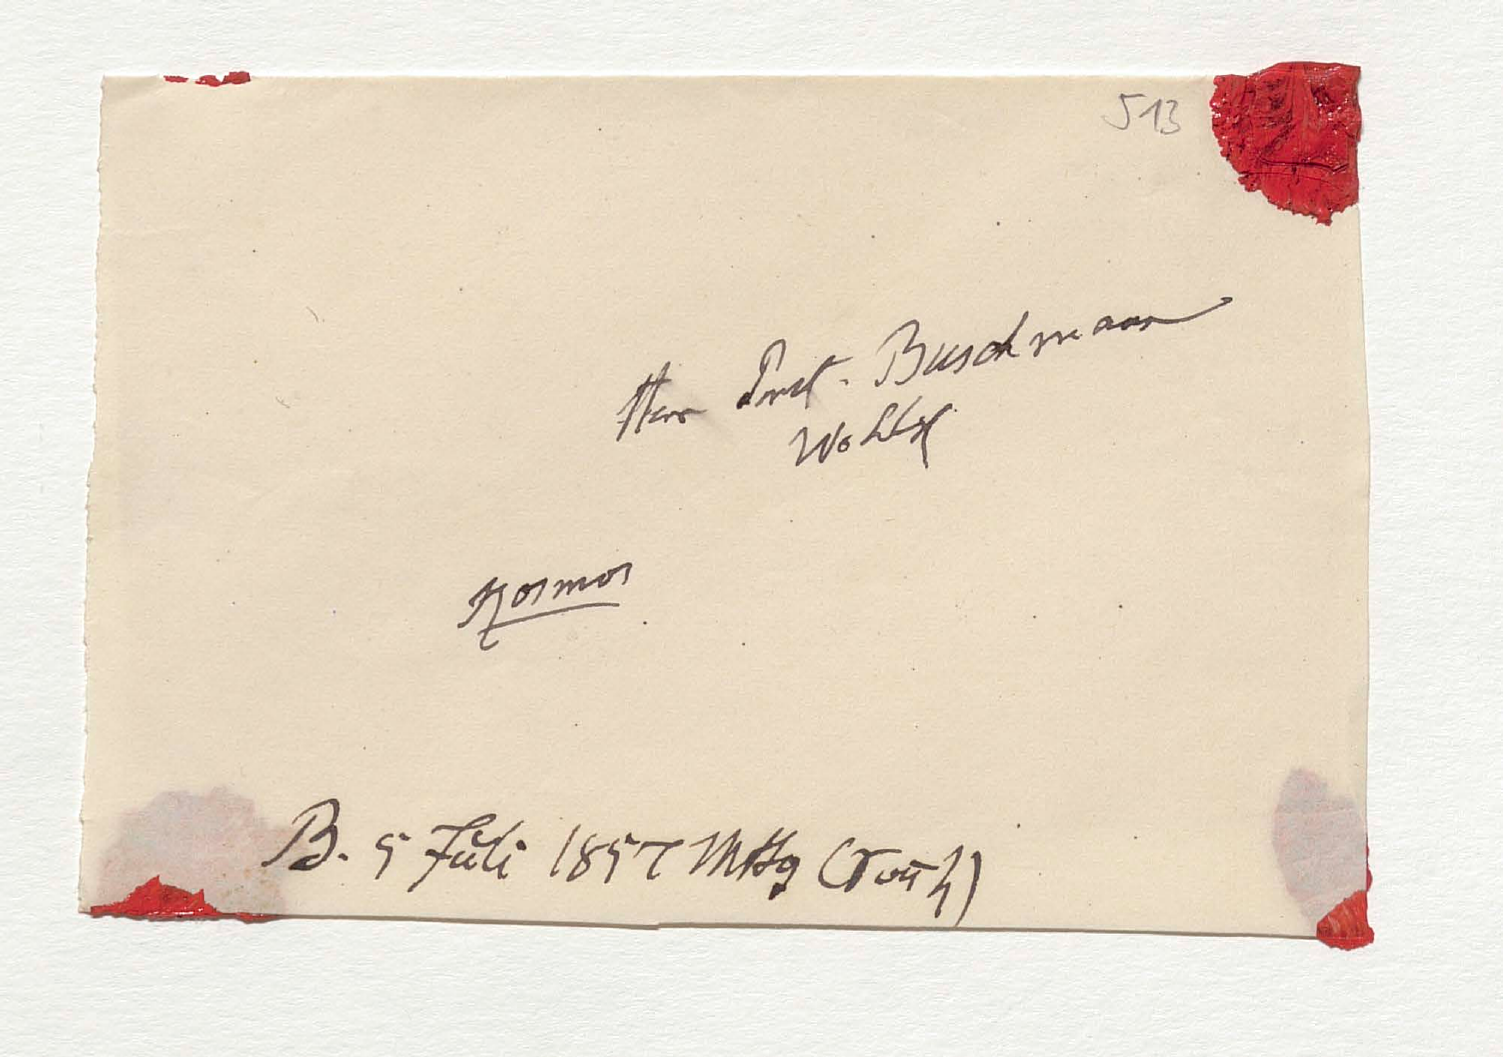 513
Herr Prof. Buschmann
Wohlg
Kosmos
B. 5 Juli 1857